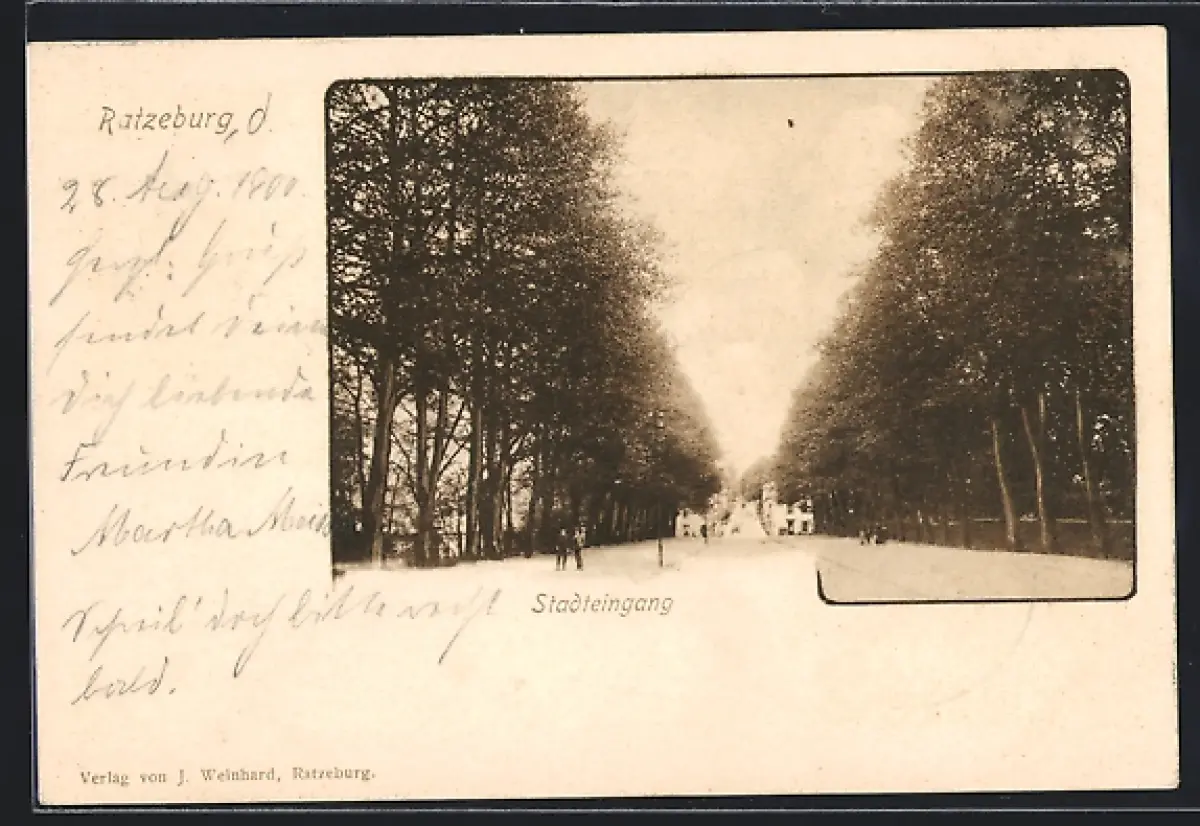 Ratzeburg, d.
28. Aug. 1900.
Herzl. Gruß
sendet Deine
Dich liebende
Freundin
Martha
Schreib' doch bitte recht
bald.
Stadteingang
Verlag von J. Weinhard, Ratzeburg.